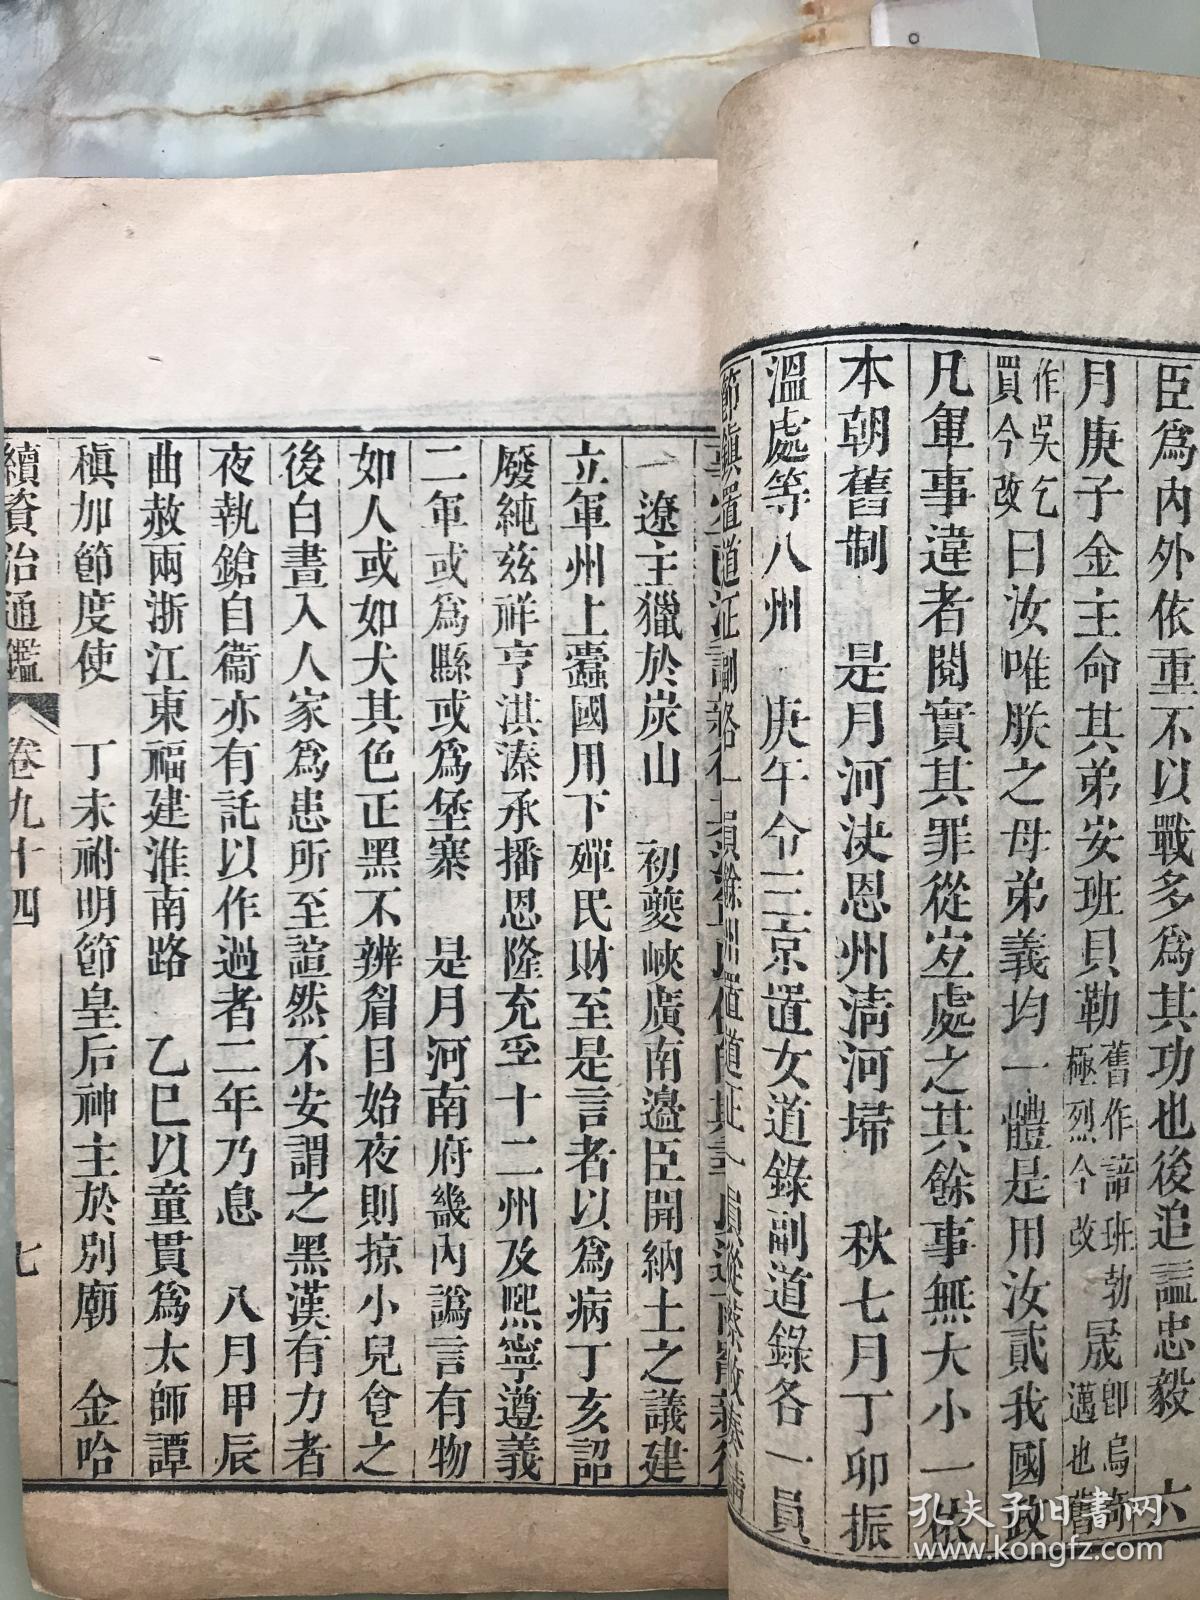 臣爲內外依重不以戰多爲其功也後追諡忠毅 六
月庚子金主命其弟安班貝勒舊作諳班勃極烈今改晟卽烏奇邁也舊
作吳乞買今改曰汝唯朕之母弟義均一體是用汝貳我國政
凡軍事違者閱實其罪從宐處之其餘事無大小一依
本朝舊制 是月河決恩州淸河埽 秋七月丁卯振
溫處等八州 庚午令三京置女道錄副道錄各一員
節鎭置道
遼主獵於炭山 初夔峽廣南邊臣開納土之議建
立軍州上蠹國用下殫民財至是言者以爲病丁亥詔
廢純兹祥亨淇溱承播恩隆充孚十二州及熙寧遵義
二軍或爲縣或爲堡寨 是月河南府畿內譌言有物
如人或如犬其色正黑不辨眉目始夜則掠小兒食之
後白晝入人家爲患所至諠然不安謂之黑漢有力者
夜執鎗自衞亦有託以作過者二年乃息 八月甲辰
曲赦兩浙江東福建淮南路 乙巳以童貫爲太師譚
稹加節度使 丁未祔明節皇后神主於別廟 金哈
續資治通鑑 卷九十四 七
孔夫子旧书网
www.kongfz.com